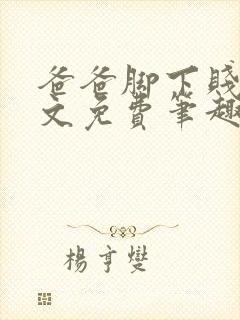 爸爸脚下贱
文免费笔趣
杨亨燮